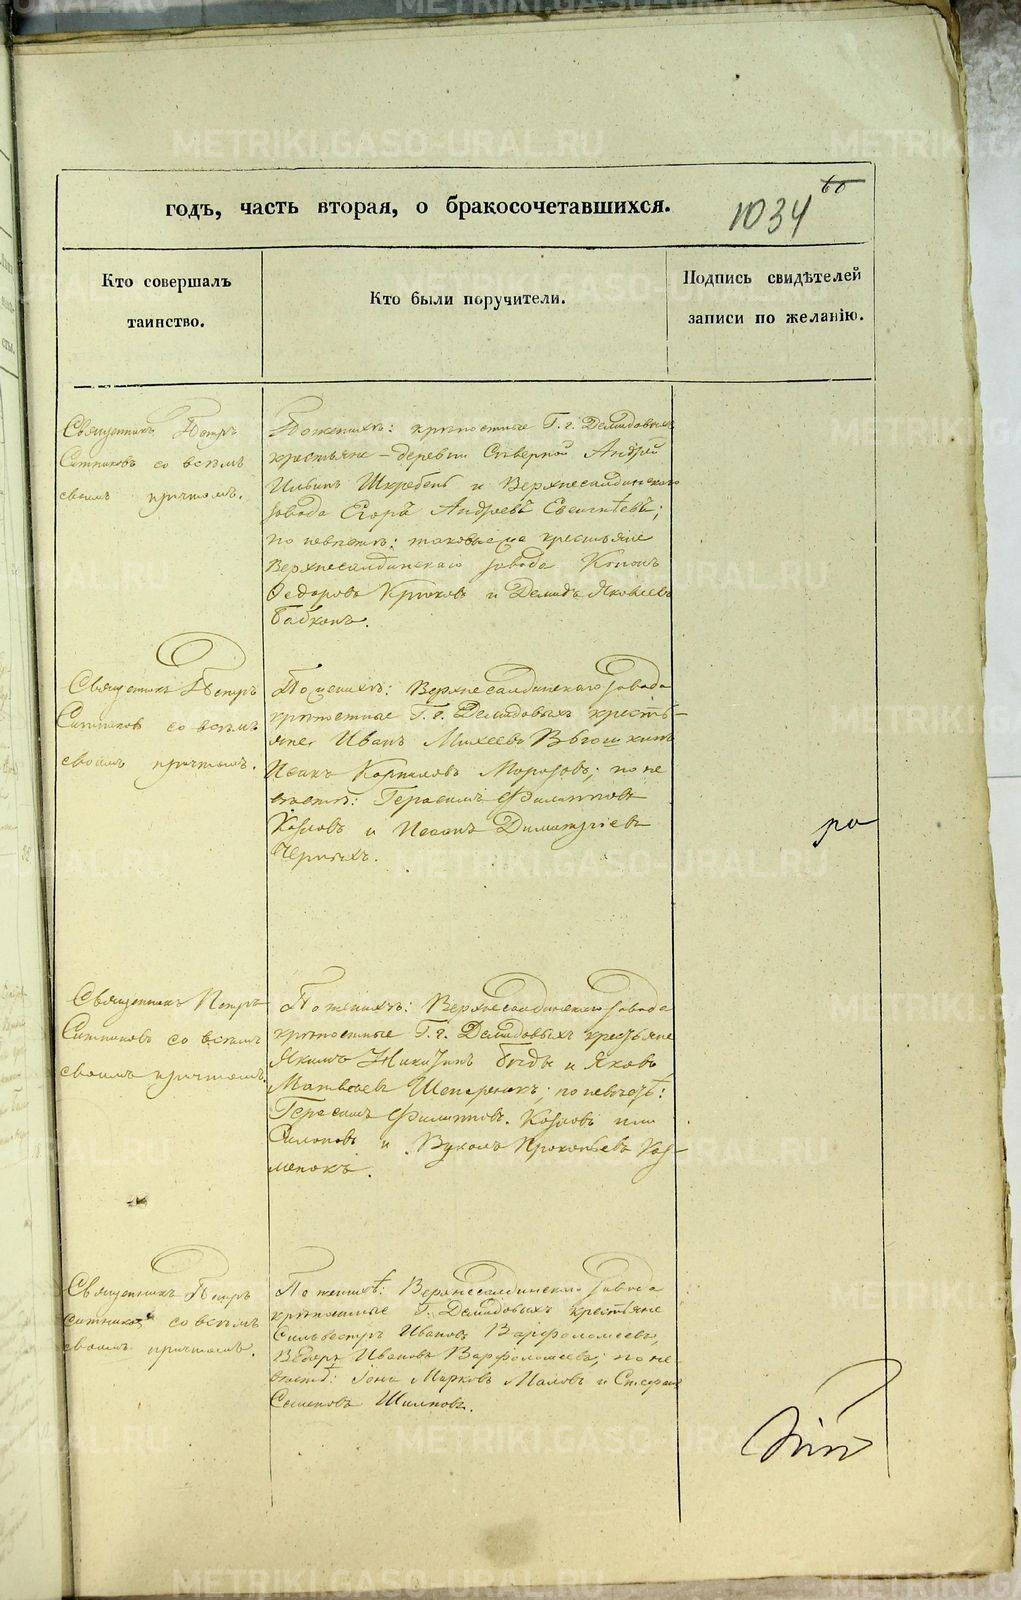 годъ, часть вторая, о бракосочетавшихся.
1034
Кто совершалъ
таинство.
Кто были поручители.
Подпись свидѣтелей
записи по желанію.
Священникъ Петръ
Ситниковъ со всѣмъ
своимъ причтомъ.
По женихѣ: крѣпостные Г. г. Демидовыхъ
крестьяне – деревни Сѣверной Андрей
Ильинъ и Верхнесалдинскаго
завода Егоръ Андреевъ Евсигнѣевъ;
по невѣстѣ: таковые же крестьяне
Верхнесалдинскаго завода Кононъ
Ѳедоровъ Крюковъ и Демидъ Яковлевъ
Священникъ Петръ
Ситниковъ со всѣмъ
своимъ причтомъ.
По женихѣ: Верхнесалдинскаго завода
крѣпостные Г. г. Демидовыхъ кресть-
яне Иванъ Михеевъ
Исакъ Корниловъ Морозовъ; по не
вѣстѣ: Герасимъ Филипповъ
Козловъ и Димитріевъ
Черныхъ.
ра
Священникъ Петръ
Ситниковъ со всѣмъ
своимъ причтомъ.
По женихѣ: Верхнесалдинскаго завода
крѣпостные Г. г. Демидовыхъ крестьяне
Якимъ Никитинъ и Яковъ
Матвѣевъ по невѣстѣ:
Герасимъ Филипповъ Козловъ или
и Вуколъ Прокопьевъ Каз-
менокъ.
Священникъ Петръ
Ситниковъ со всѣмъ
своимъ причтомъ.
По женихѣ: Верхнесалдинскаго завода
крѣпостные Г. Демидовыхъ крестьяне
Сильвестръ Ивановъ Варфоломеевъ,
Ивановъ Варфоломеевъ; по не-
вѣстѣ: Іона Марковъ Маловъ и Стефанъ
Семеновъ Шилковъ.
METRIKI.GASO-URAL.RU